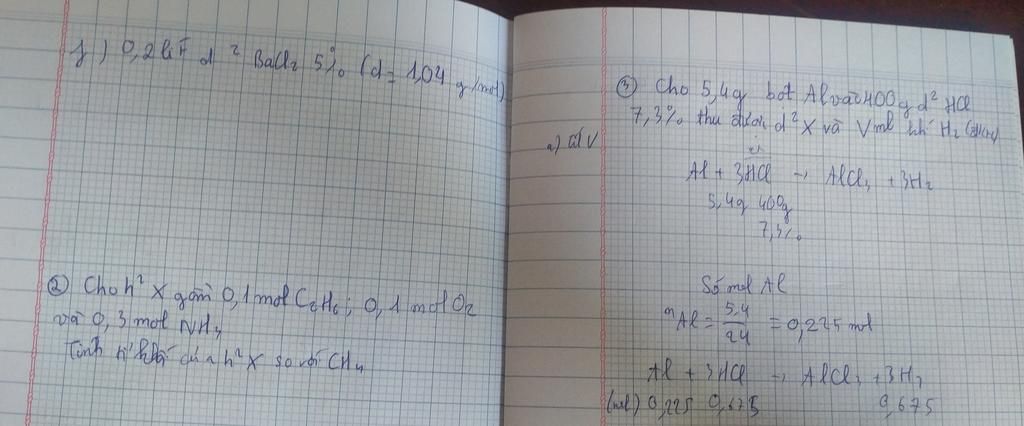 f) 0,2 lít d² BaCl₂ 5% (d = 1,04 g/mol)
② Cho h² X gồm 0,1 mol C₂H₆; 0,1 mol O₂
và 0,3 mol NH₃
Tính tỉ khối của h² X so với CH₄
③ Cho 5,4g bột Al vào 400g d² HCl
7,3% thu được d² X và V ml khí H₂ (đktc)
a) V
Al + 3HCl → AlCl₃ + 3H₂
5,4g 400g
7,3%
Số mol Al
nAl = 5,4/24 = 0,225 mol
Al + 3HCl → AlCl₃ + 3H₂
(mol) 0,225 0,675 0,675